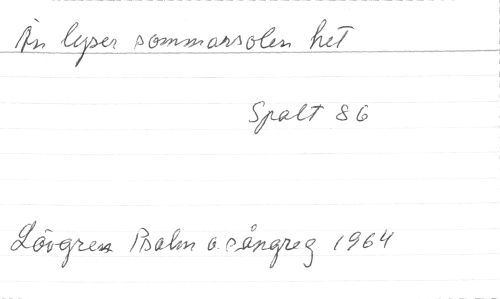 Än lyser sommarsolen het
Spalt 86
Lövgren Psalm o. sångreg 1964